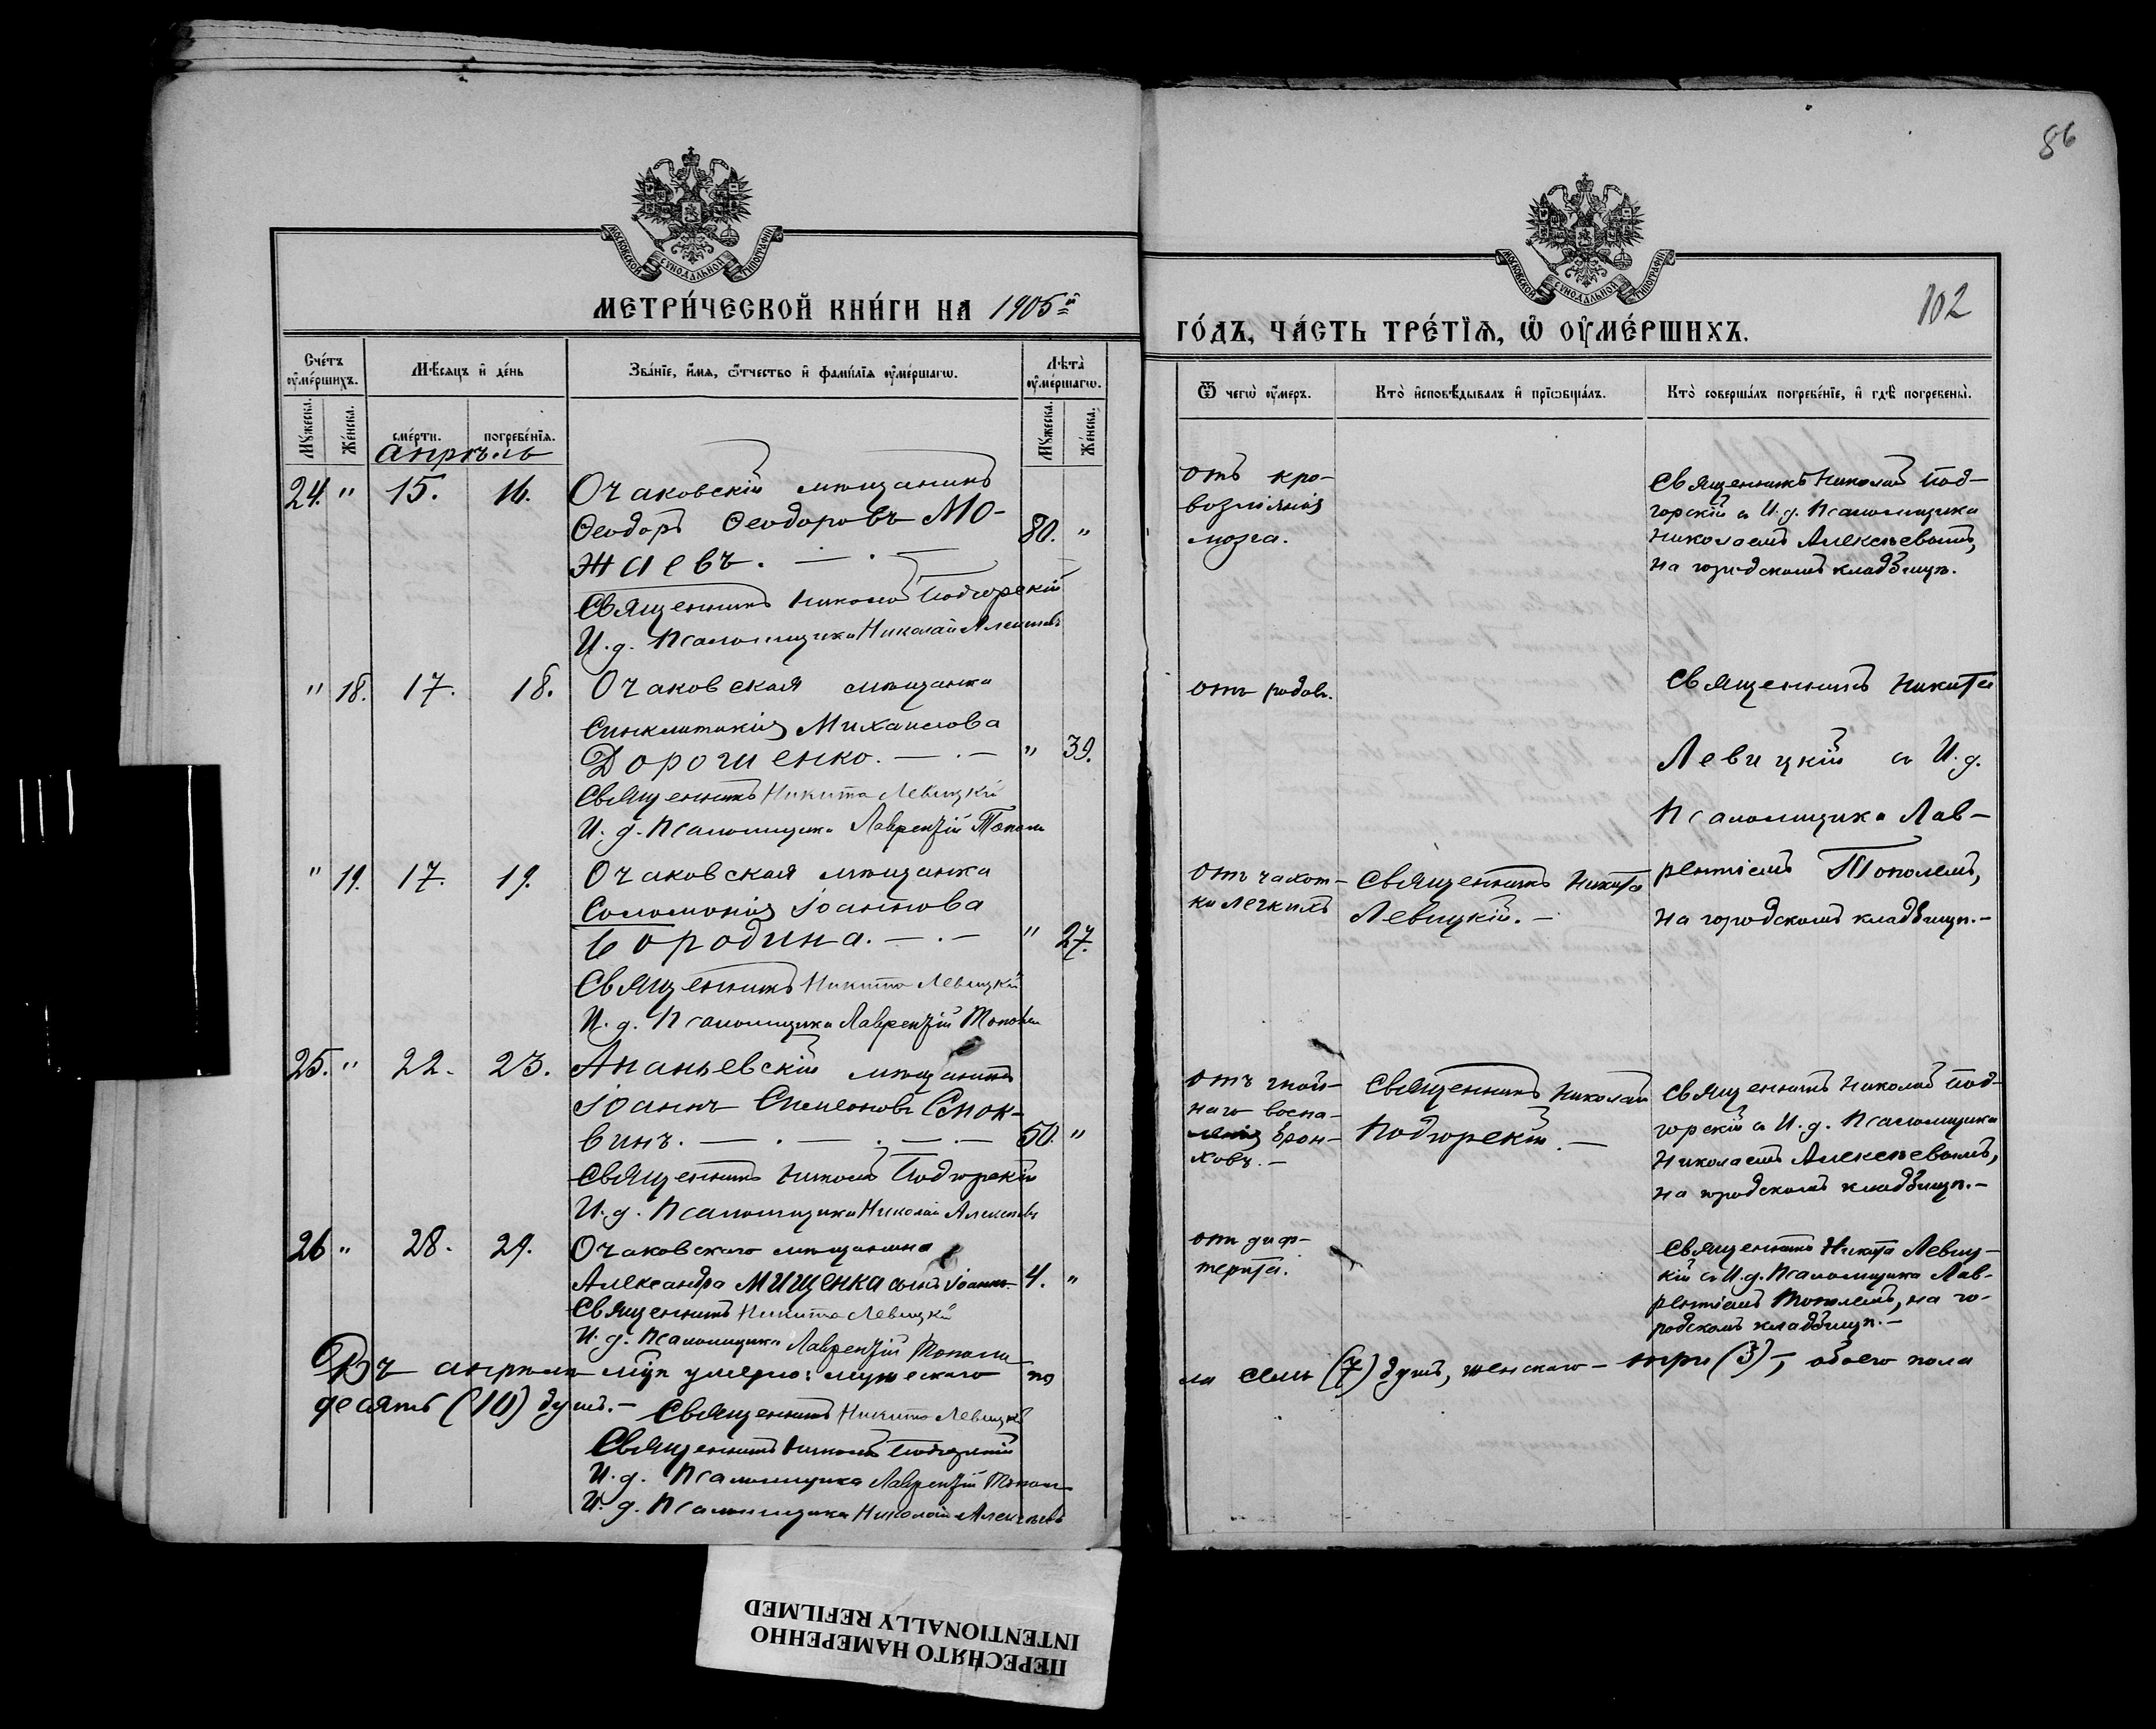 86
МОСКОВСКОЙ СѴНОДАЛЬНОЙ ТИПОГРАФІИ
МОСКОВСКОЙ СѴНОДАЛЬНОЙ ТИПОГРАФІИ
МЕТРИ́ЧЕСКОЙ КНИ́ГИ НА 1905й
102
ГО́ДЪ, ЧА́СТЬ ТРЕ́ТІѦ, Ѡ҆ ОУ҆МЕ́РШИХЪ.
Сче́тъ оу҆ме́ршихъ.
Мѣ́сяцъ и҆ де́нь
Зва́нїе, и҆́мѧ, ѻ҆́тчество и҆ фами́лїѧ оу҆ме́ршагѡ.
Лѣ́та оу҆ме́ршагѡ.
Мꙋ́жеска.
Же́нска.
сме́рти.
погребе́нїѧ.
Мꙋ́жеска.
Же́нска.
Ѿ чегѡ̀ оу҆́меръ.
Кто̀ и҆сповѣ́дывалъ и҆ прїѡбща́лъ.
Кто̀ соверша́лъ погребе́нїе, и҆ гдѣ̀ погребены̀.
апрѣль
24. " 15. 16. Очаковскій мѣщанинъ
Ѳеодоръ Ѳеодоровъ Мо-
жаевъ. 80. "
Священникъ Николай Подгорскій
И. д. Псаломщика Николай Алексѣевъ
отъ кро-
возліянія
мозга.
Священникъ Николай Под-
горскій съ И. д. Псаломщика
Николаемъ Алексѣевымъ,
на городскомъ кладбищѣ.
" 18. 17. 18. Очаковская мѣщанка
Синклитикія Михаилова
Дорошенко. " 39.
Священникъ Никита Левицкій
И. д. Псаломщика Лаврентій Тополь
отъ родовъ.
Священникъ Никита
Левицкій съ И. д.
Псаломщика Лав-
рентіемъ Тополемъ,
на городскомъ кладбищѣ.
" 19. 17. 19. Очаковская мѣщанка
Соломонія Іоаннова
Бородина. " 27.
Священникъ Никита Левицкій
И. д. Псаломщика Лаврентій Тополь
отъ чахот-
ки легкихъ
Священникъ Никита
Левицкій.
25. " 22. 23. Ананьевскій мѣщанинъ
Іоаннъ Симеоновъ Смок-
винъ. 50. "
Священникъ Николай Подгорскій
И. д. Псаломщика Николай Алексѣевъ
отъ гной-
наго воспа-
ленія брон-
ховъ.
Священникъ Николай
Подгорскій.
Священникъ Николай Под-
горскій съ И. д. Псаломщика
Николаемъ Алексѣевымъ,
на городскомъ кладбищѣ.
26 " 28. 29. Очаковскаго мѣщанина
Александра Мищенка сынъ Іоаннъ. 4. "
Священникъ Никита Левицкій
И. д. Псаломщика Лаврентій Тополь
отъ диф-
терита.
Священникъ Никита Левиц-
кій съ И. д. Псаломщика Лав-
рентіемъ Тополемъ, на го-
родскомъ кладбищѣ.
Въ апрѣлѣ м-цѣ умерло: мужескаго по
ла семь (7) душъ, женскаго - три (3), обоего пола
десять (10) душъ. Священникъ Никита Левицкій
Священникъ Николай Подгорскій
И. д. Псаломщика Лаврентій Тополь
И. д. Псаломщика Николай Алексѣевъ
ПЕРЕСНЯТО НАМЕРЕННО
INTENTIONALLY REFILMED